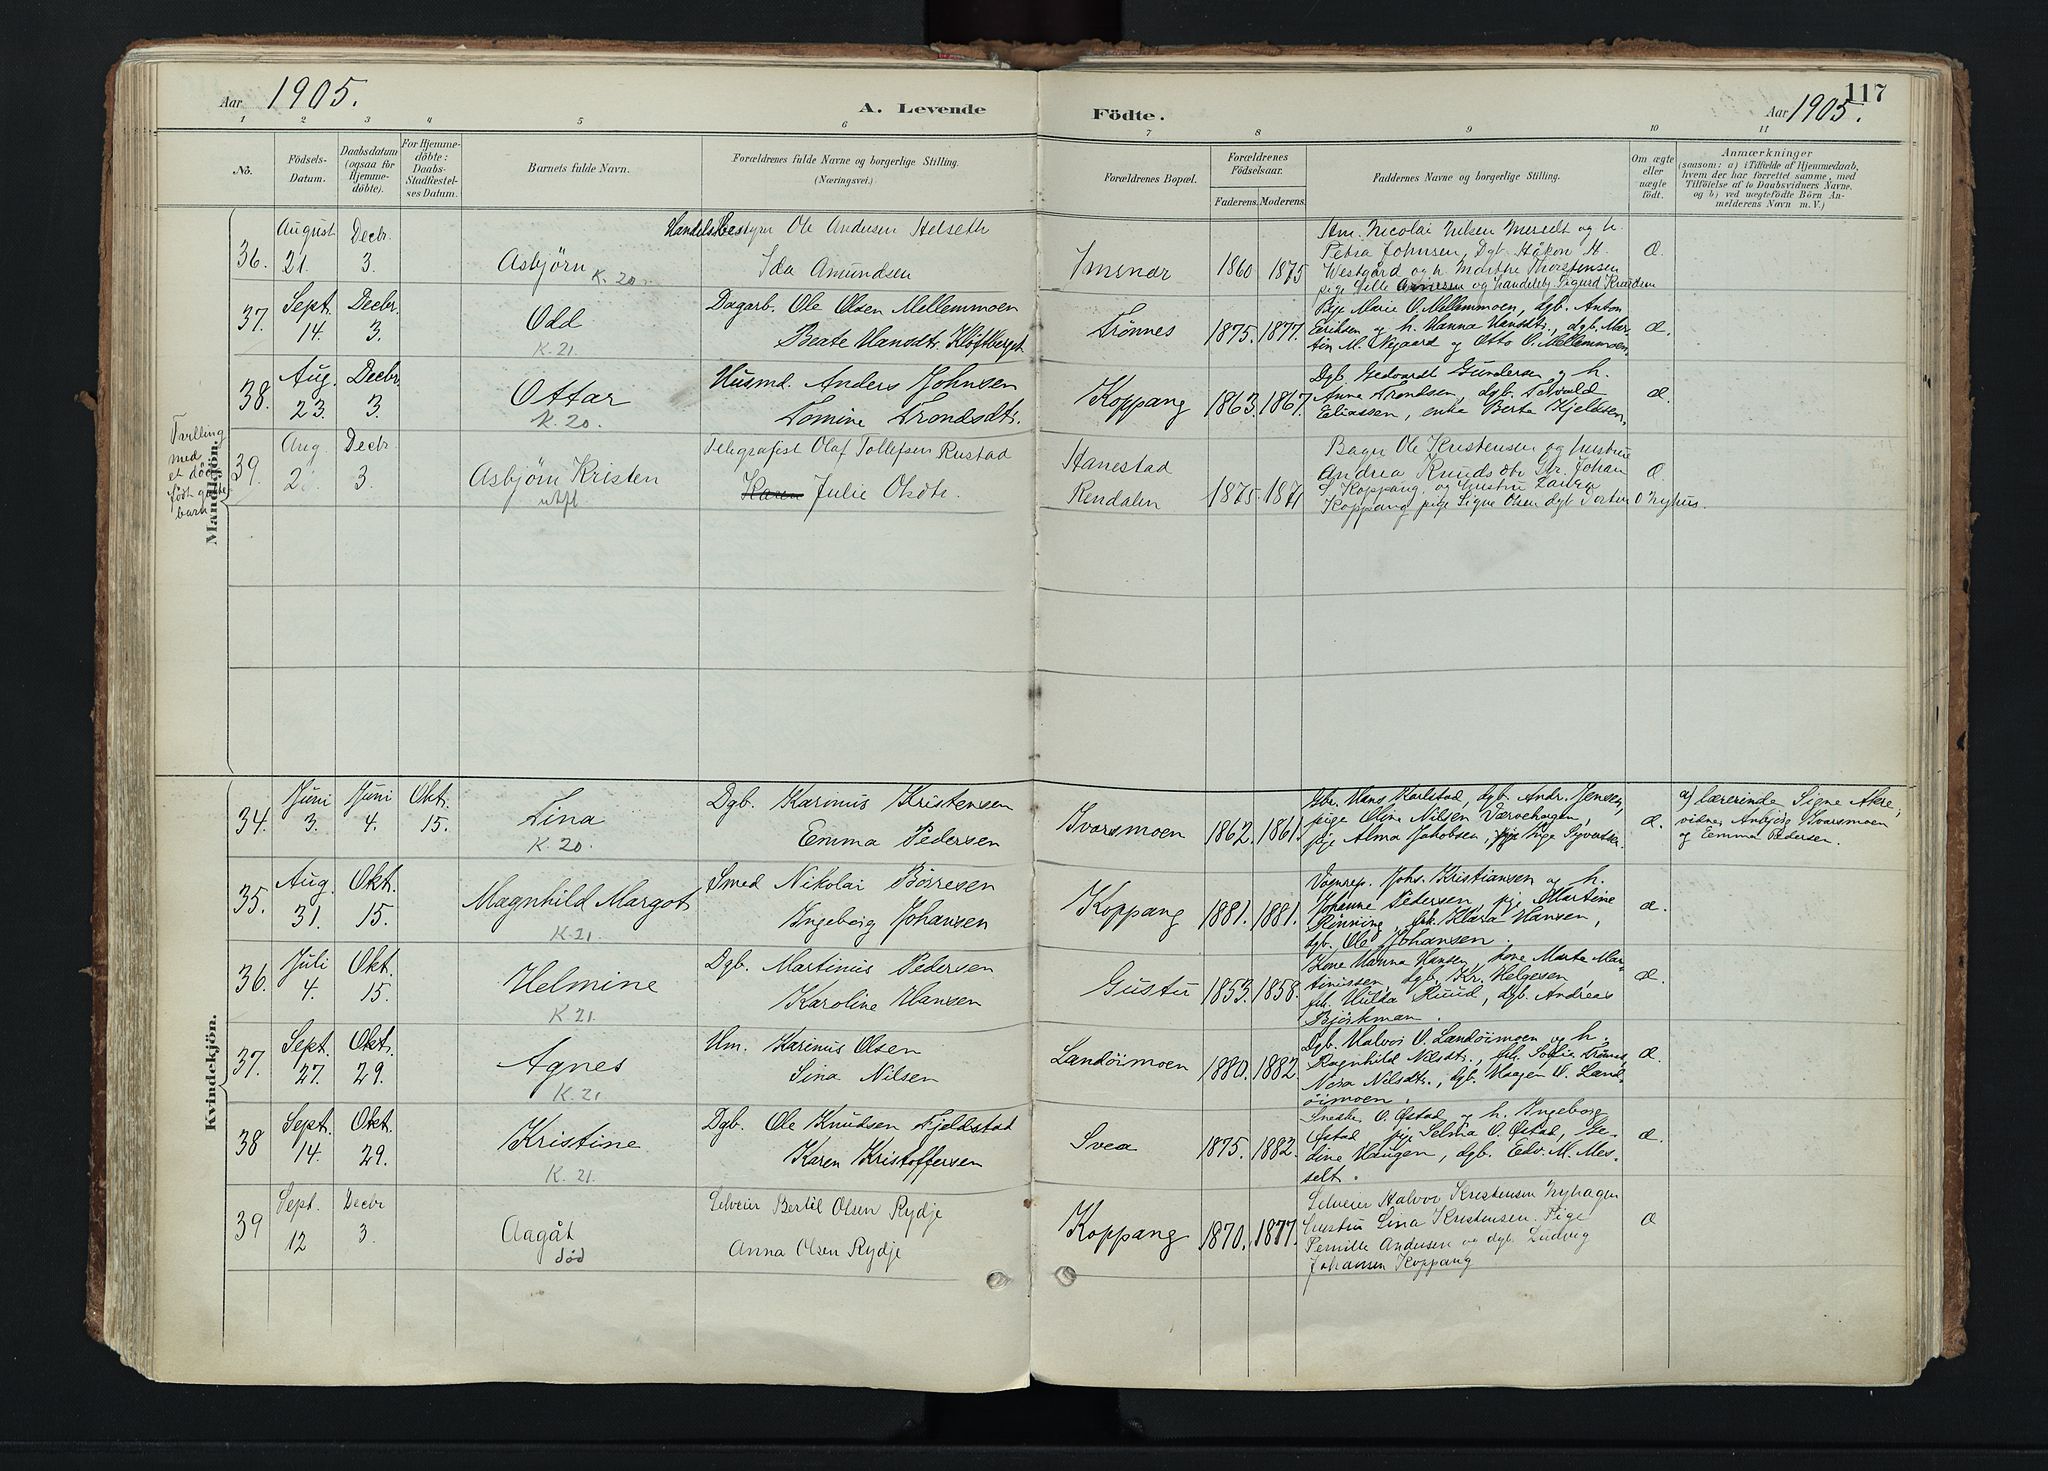 Aar 1905.
A. Levende
Födte.
Aar 1905.
117
1 2 3 4 5 6 7 8 9 10 11
No.
Födsels-
Datum.
Daabsdatum
(ogsaa for
Hjemme-
döbte).
For Hjemme-
döbte:
Daabs-
Stadfæstel-
ses Datum.
Barnets fulde Navn.
Forældrenes fulde Navne og borgerlige Stilling.
(Næringsvei.)
Forældrenes Bopæl.
Forældrenes
Födselsaar.
Faderens. Moderens.
Faddernes Navne og borgerlige Stilling.
Om ægte
eller
uægte
født.
Anmærkninger
(saasom: a) i Tilfælde af Hjemmedaab,
hvem der har forrettet samme, med
Tilföielse af to Daabsvidners Navne.
og b) ved uægtefödte Börn An-
melderens Navn m. V.)
Mandkjön.
36.
August
21.
Decbr.
3.
Asbjörn
K. 20.
Handelsbestyrer Ole Andersen Helseth
Ida Amundsen
Imenær
1860 1875
Hm. Nicolai Nilsen Messelt og h.
Petra Johnsen, Dgb. Håkon H.
Westgård og h. Marthe Thorstensen
pige Lille og handelsb. Sigurd Knudsen
Æ.
37.
Sept.
14.
Decbr.
3.
Odd
K. 21.
Dagarb. Ole Olsen Mellemmoen
Beate Hansdtr. Kloftberget
Trønnes
1875. 1877.
Pige Marie O. Mellemmoen, dgb. Anton
Eriksen og h. Hanna Hansdtr., dgb. Mar-
tin M. Nygaard og Otto O. Mellemmoen.
Æ.
38.
Aug.
23.
Decbr.
3.
Ottar
K. 20.
Husmd. Anders Johnsen
Tomine Trondsdtr.
Koppang
1863. 1867.
Dgb. Gedvardt Gundersen og h.
Anne Trondsen, dgb. Torvald
Eliassen, enke Berte Kjeldsen.
Æ.
Tvilling
med
et død-
født
barn
39.
Aug.
Decbr.
3.
Asbjørn Kristen
utfl
Telegrafist Olaf Tollefsen Rustad
Karen Julie Olsdtr.
Hanestad
Rendalen
1875. 1871
Bager Ole Kristensen og hustru
Andrea Knudsdtr. Gr. Johan
S. Koppang og hustru Laura
Koppang pige Signe Olsen dgb. Torber O Nyhus.
Kvindekjön.
34.
Juni
3.
Juni
4.
Okt.
15.
Lina
K. 20.
Dgb. Karinus Kristensen
Emma Pedersen
Ivarsmoen
1862. 1861.
Gbr. Hans Karlstad, dgb. Andr. Jensen,
pige Oline Nilsen Værvehagen,
pige Alma Jakobsen, pige Inge Syvertsen.
Æ.
a) lærerinde Signe Akre,
vidner Anbjörg Ivarsmoen
og Eemma Pedersen.
35.
Aug.
31.
Okt.
15.
Magnhild Margot
K. 21.
Smed Nikolai Börresen
Ingeborg Johansen
Koppang
1881. 1881.
Vognrep. Johs. Kristiansen og h.
Johanne Pedersen, pige Martine
Rönning, frk. Klara Hansen,
dgb. Ole Johansen.
Æ.
36.
Juli
4.
Okt.
15.
Helmine
K 21.
Dgb. Martinus Pedersen
Karoline Hansen
Gustu
1853. 1858.
Kone Hanna Hansen, kone Marte Mar-
tinissen, dgb. Kr. Helgesen,
frk. Hulda Ruud, dgb. Andreas
Björkman.
Æ.
37.
Sept.
27.
Okt.
29.
Agnes
K. 21
Hm. Karinus Olsen
Lina Nilsen
Landöimoen
1880. 1882
Dgb. Halvor O. Landöimoen og h.
Ragnhild Nilsdtr., frk. Sofie Trönnes,
Nora Nilsdtr., dgb. Haagen O. Land-
öimoen.
Æ.
38
Sept.
14.
Okt.
29.
Kristine
K. 21.
Dgb. Ole Knudsen Fjeldstad
Karen Kristoffersen
Svea
1875. 1882.
Snedker O. Østad og h. Ingeborg
Østad, pige Selma O. Østad, Ge-
line Haugen, dgb. Edv. M. Mes-
selt.
Æ.
39
Sept.
12
Decbr
3.
Aagåt
död
Selveier Bertil Olsen Rydje
Anna Olsen Rydje
Koppang
1870. 1877.
Selveier Halvor Kristensen Nyhagen
hustru Lina Kristensen. Pige
Pernille Andersen og dgb. Ludvig
Johansen Koppang